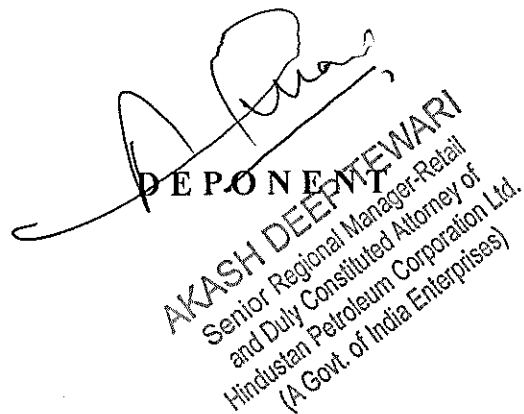 DEPONENT
AKASH DEEP TEWARI
Senior Regional Manager-Retail
and Duly Constituted Attorney of
Hindustan Petroleum Corporation Ltd.
(A Govt. of India Enterprises)